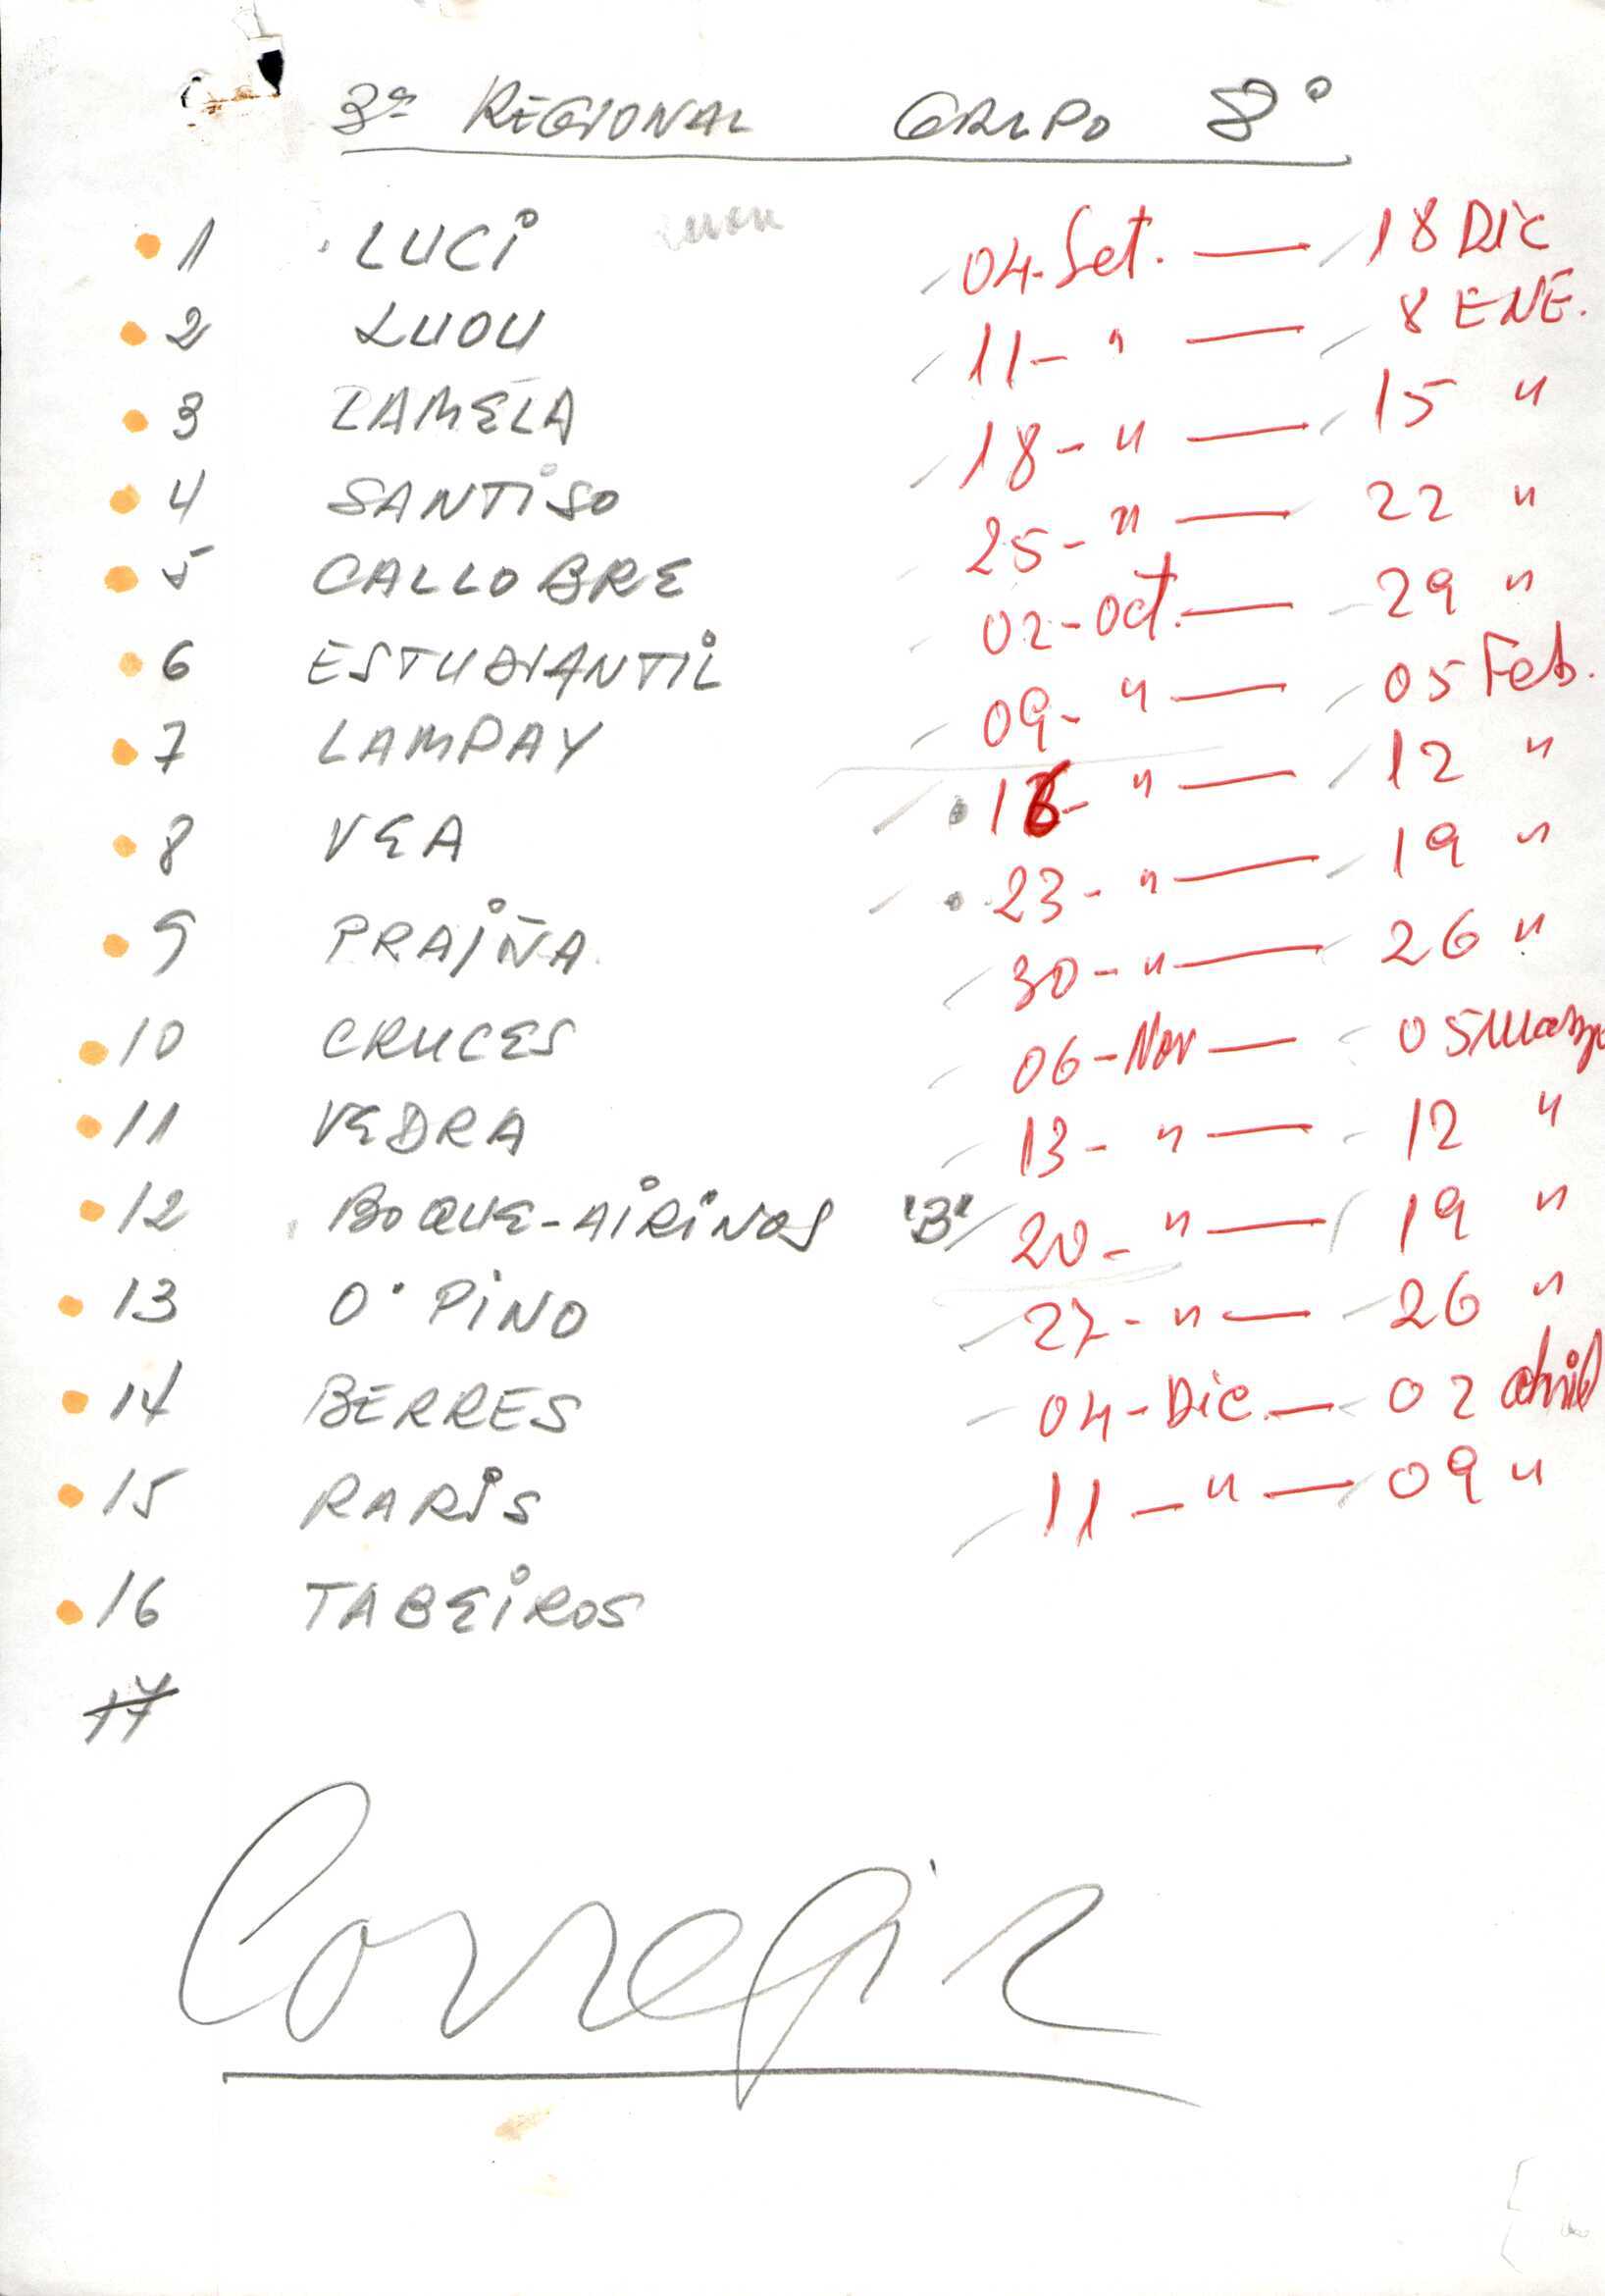 3ª REGIONAL GRUPO 8º
1 LUCI 04-Set. — 18 Dic
2 LUOU 11- " — 8 ENE.
3 LAMELA 18- " — 15 "
4 SANTISO 25- " — 22 "
5 CALLOBRE 02-Oct. — 29 "
6 ESTUDIANTIL 09- " — 05 Feb.
7 LAMPAY 16- " — 12 "
8 VEA 23- " — 19 "
9 PRAIÑA 30- " — 26 "
10 CRUCES 06-Nov — 05 Marzo
11 VEDRA 13- " — 12 "
12 BOQUE-AIRIÑOS "B" 20- " — 19 "
13 O' PINO 27- " — 26 "
14 BERRES 04-Dic. — 02 abril
15 RARIS 11- " — 09 "
16 TABEIROS
17
Corregir